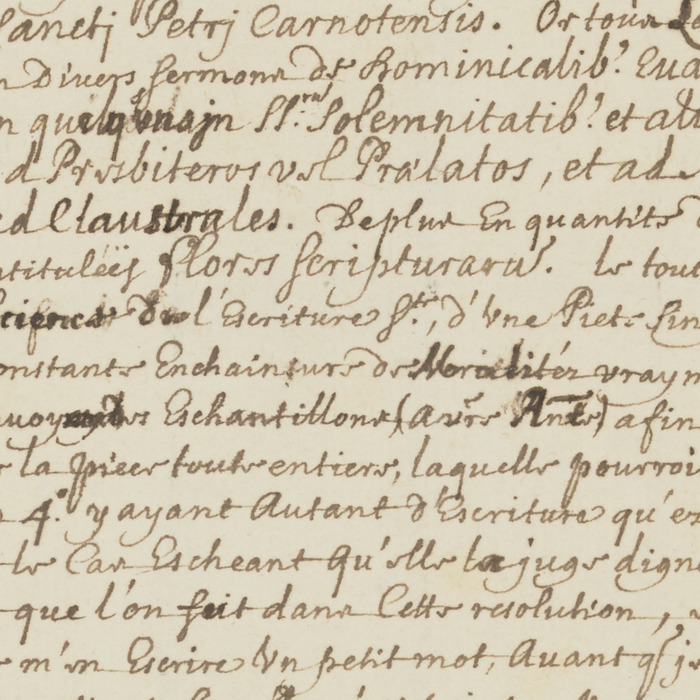 Sanctj Petrj Carnotensis. Or tous
Divers sermons de Dominicalib.' Eva
SS.rum Solemnitatib.' et al
d Presbiteros vel Prælatos, et ad
ed Claustrales. De plus En quantité
ntituléés flores scripturarū. le tout
science de l'Escriture Ste, d'Vne Pieté sin
onstante Enchainture de Moralitéz vraym
Eschantillons (avre Ante) afin
la piece toute entiere, laquelle pourroi
4.° y ayant Autant d'Escriture qu'e
le Cas Escheant qu'elle la juge digne
que l'on feit dans Cette resolution,
m'en Escrire Vn petit mot, Avant q